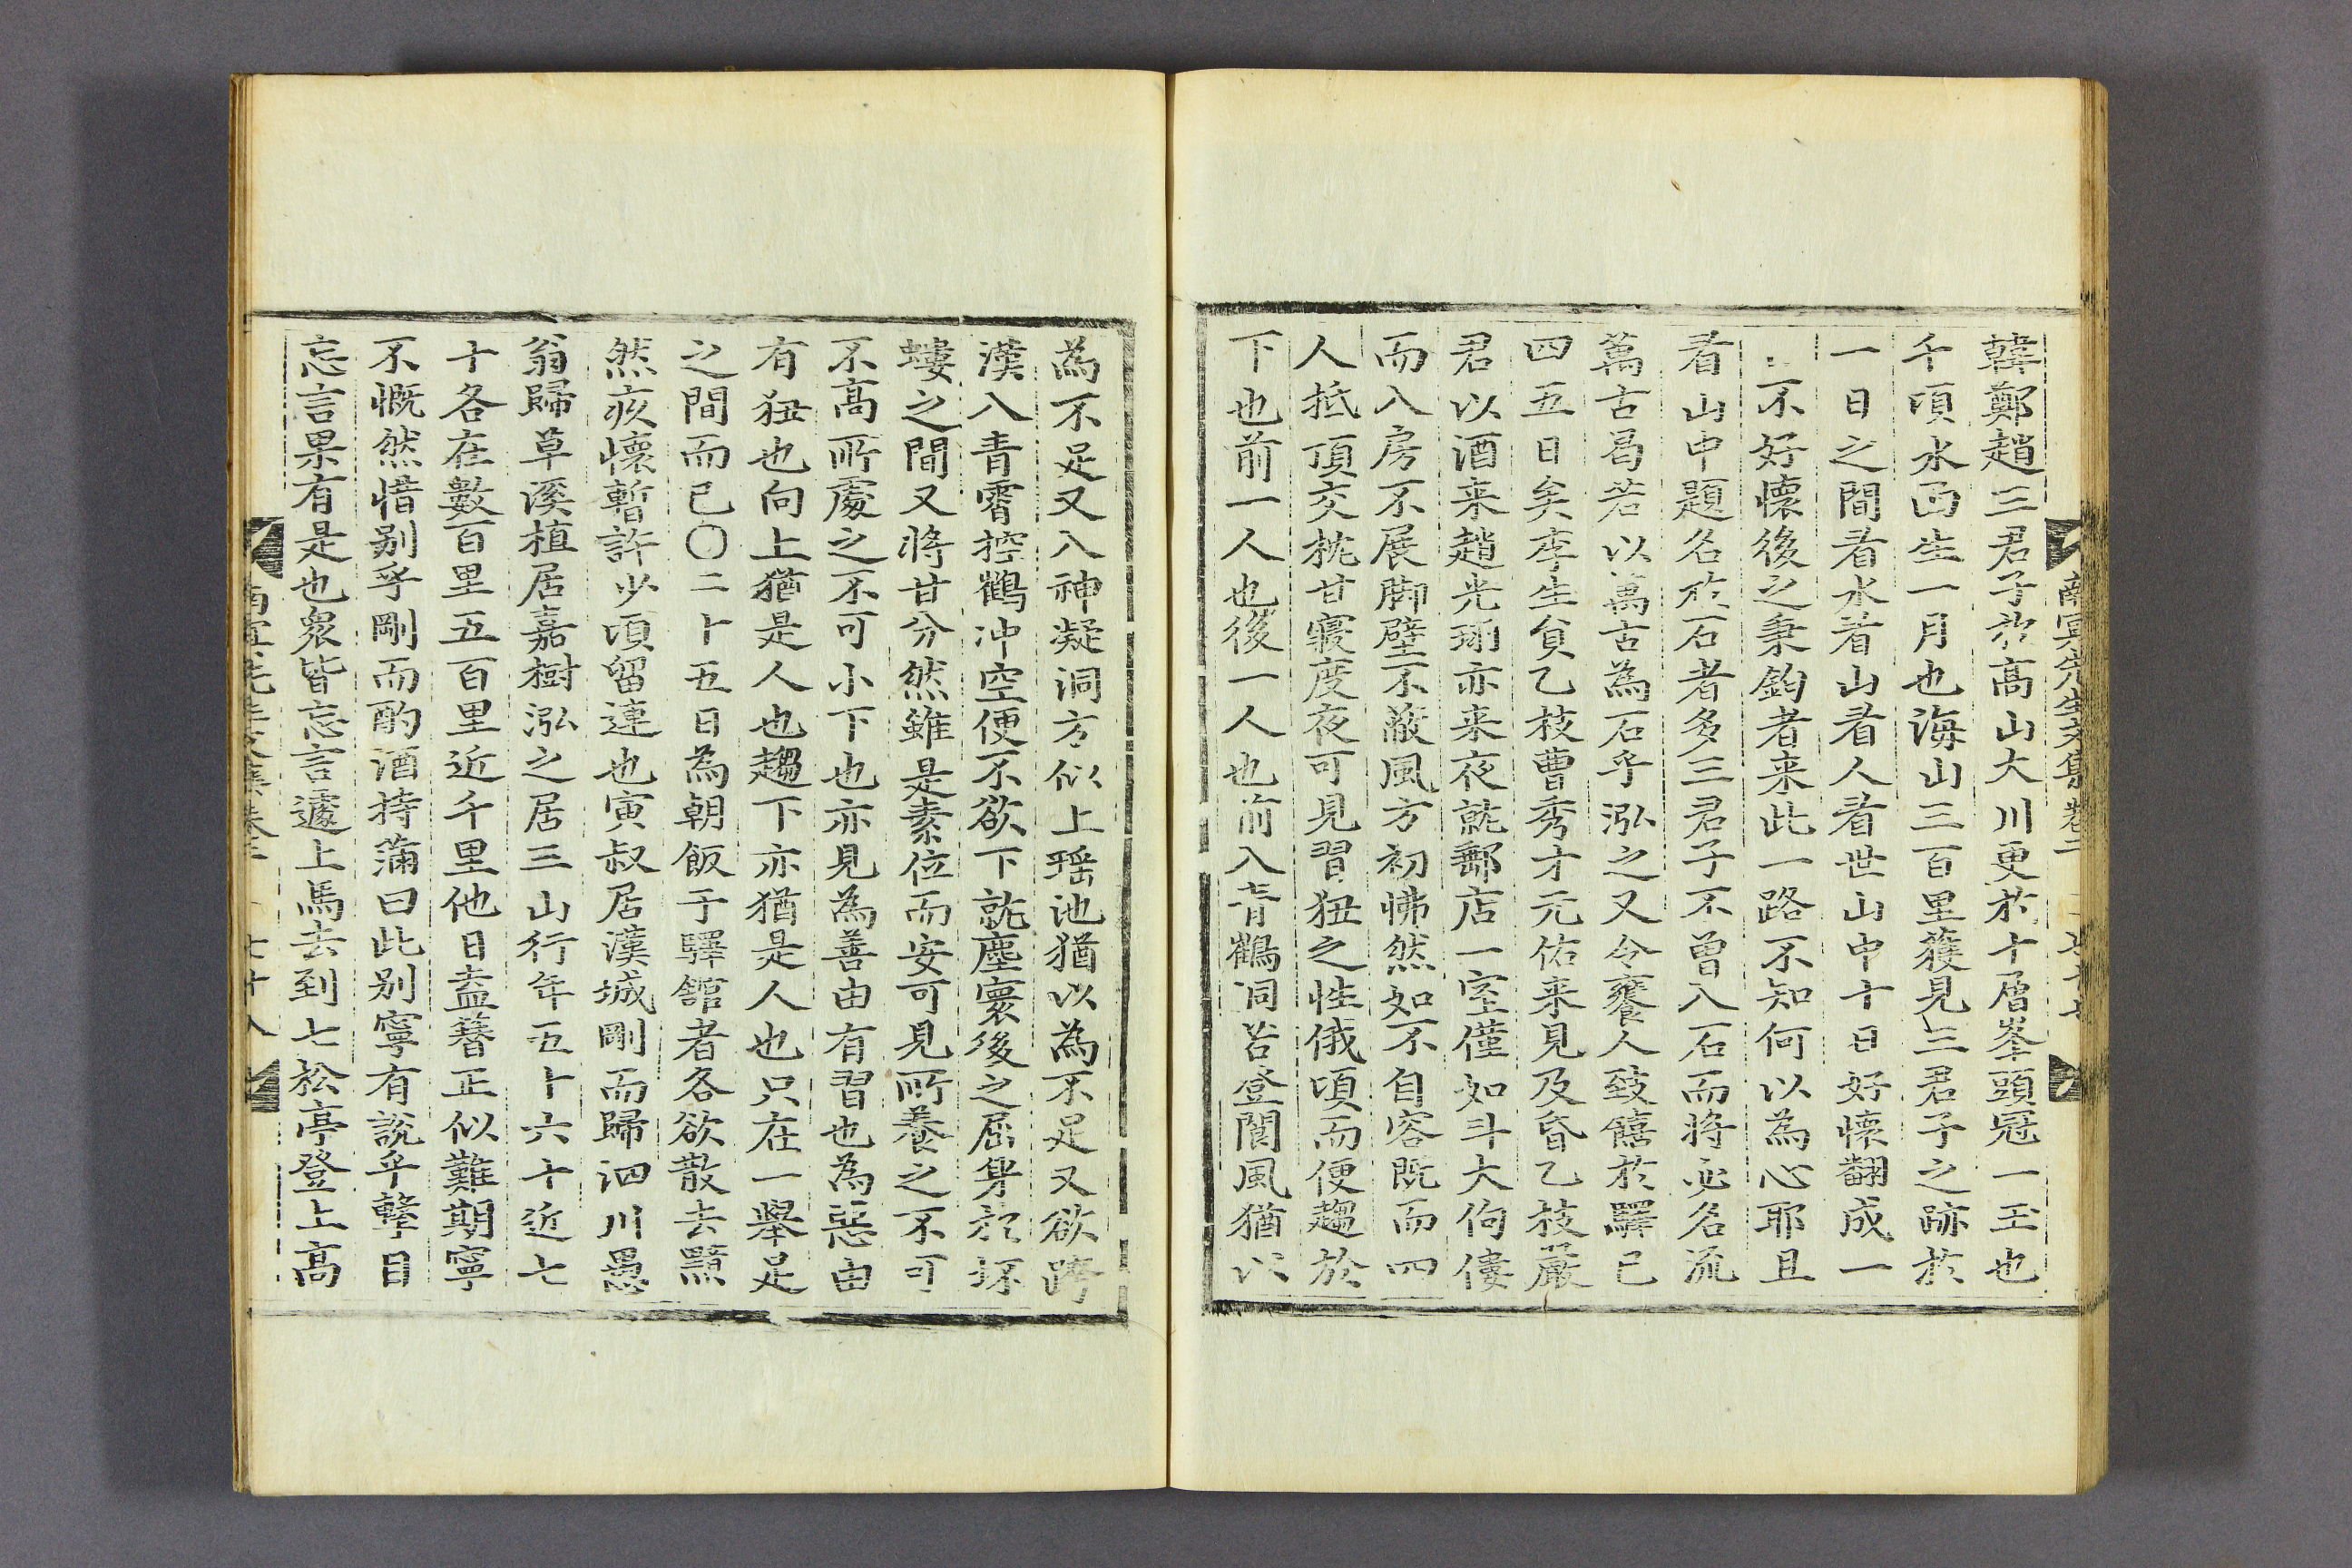 韓鄭趙三君子於高山大川更於十層峯頭冠一玉也
千頃水面生一月也海山三百里獲見三君子之跡於
一日之間看水看山看人看世山中十日好懷翻成一
不好懷後之秉鈞者来此一路不知何以為心耶且
看山中題名於石者多三君子不曾入石而將必名流
萬古曷若以萬古為石乎泓之又令饔人致饎於驛已
四五日矣李生貟乙枝曹秀才元佑来見及昏乙枝嚴
君以酒来趙光珝亦来夜就郵店一室僅如斗大佝僂
而入房不展脚壁不蔽風方初怫然如不自容既而四
人抵頂交枕甘寢度夜可見習狃之性俄頃而便趨於
下也前一人也後一人也前入青鶴洞若登閬風猶以
南冥先生文集卷二 七十七
為不足又入神凝洞方似上瑶池猶以為不足又欲跨
漢入青霄控鶴冲空便不欲下就塵寰後之屈身於坏
螻之間又將甘分然雖是素位而安可見所養之不可
不高所處之不可小下也亦見為善由有習也為惡由
有狃也向上猶是人也趨下亦猶是人也只在一舉足
之間而已〇二十五日為朝飯于驛舘者各欲散去黯
然疚懷暫許少頃留連也寅叔居漢城剛而歸泗川愚
翁歸草溪植居嘉樹泓之居三山行年五十六十近七
十各在數百里五百里近千里他日盍簪正似難期寧
不慨然惜别乎剛而酌酒持蒲曰此别寧有說乎聱目
忘言果有是也衆皆忘言遽上馬去到七松亭登上高
南冥先生文集卷二 七十八